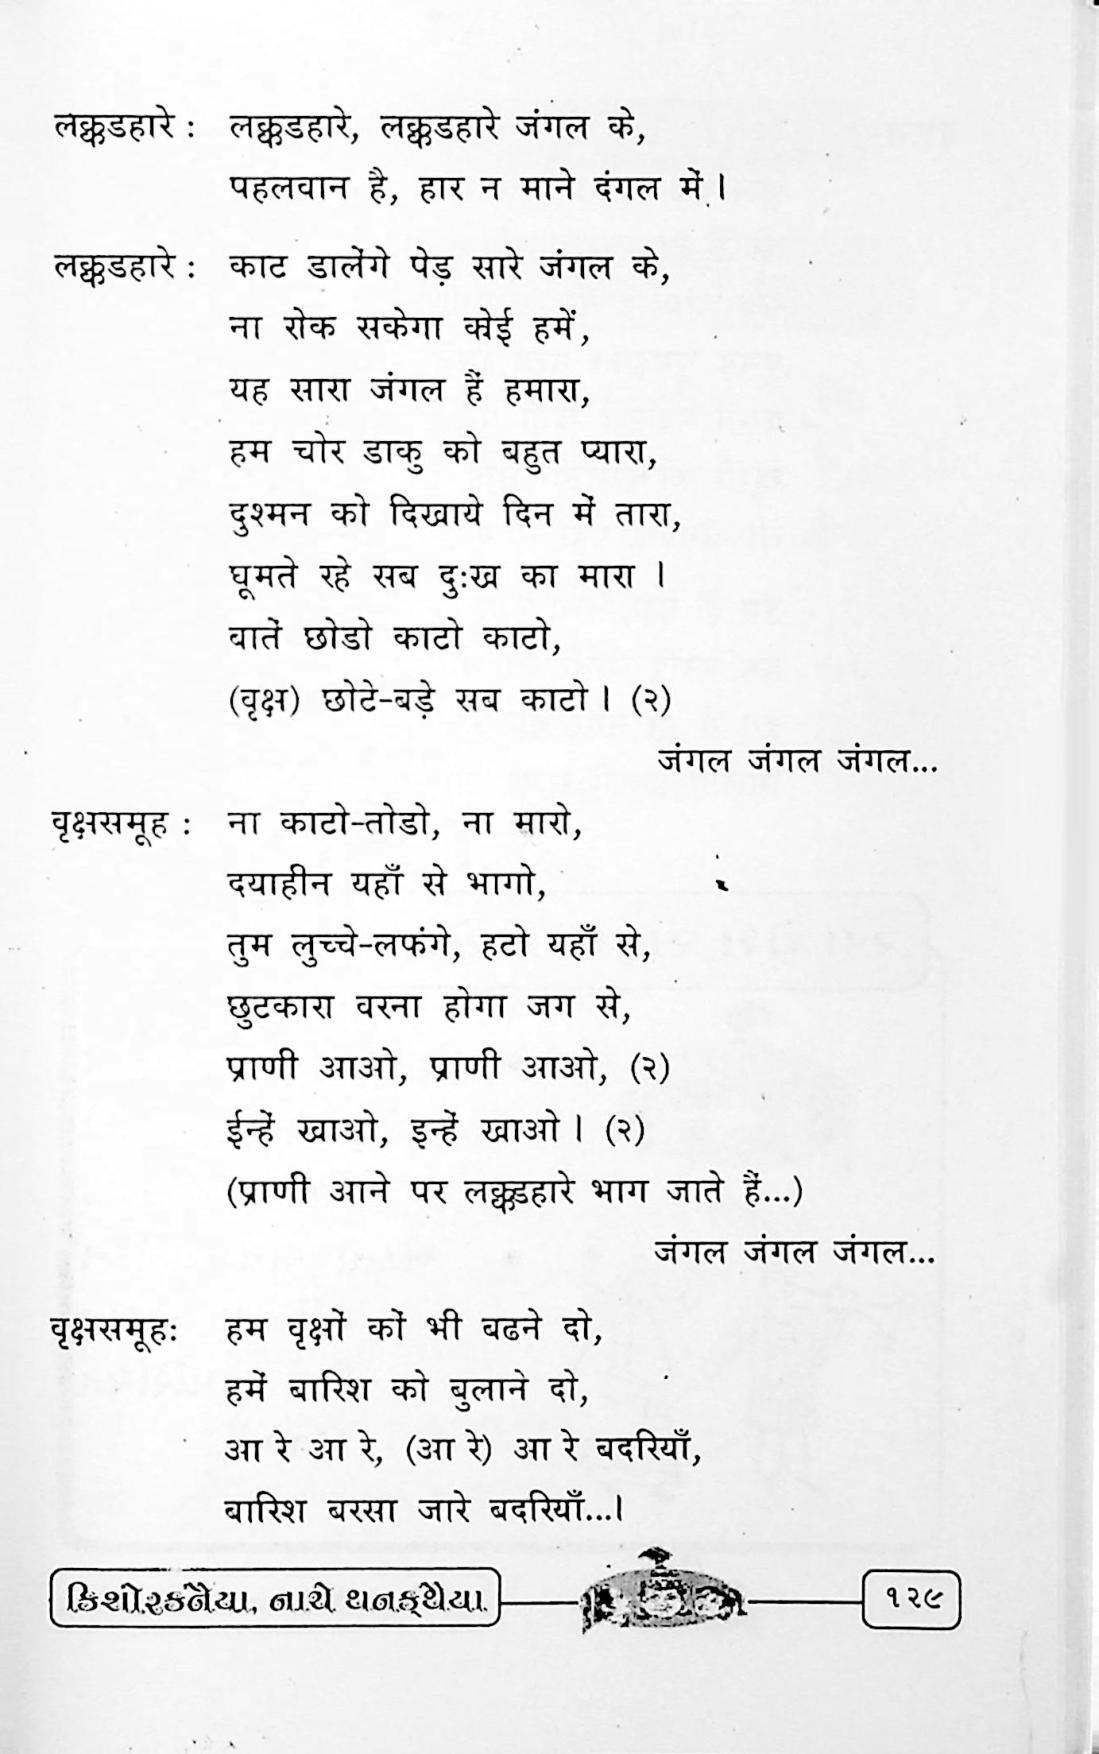 लक्कडहारे : लक्कडहारे, लक्कडहारे जंगल के,
पहलवान है, हार न माने दंगल में ।
लक्कडहारे : काट डालेंगे पेड़ सारे जंगल के,
ना रोक सकेगा कोई हमें,
यह सारा जंगल हैं हमारा,
हम चोर डाकु को बहुत प्यारा,
दुश्मन को दिखाये दिन में तारा,
घूमते रहे सब दुःख का मारा ।
बातें छोडो काटो काटो,
(वृक्ष) छोटे-बड़े सब काटो । (२)
जंगल जंगल जंगल...
वृक्षसमूह : ना काटो-तोडो, ना मारो,
दयाहीन यहाँ से भागो,
तुम लुच्चे-लफंगे, हटो यहाँ से,
छुटकारा वरना होगा जग से,
प्राणी आओ, प्राणी आओ, (२)
ईन्हें खाओ, इन्हें खाओ । (२)
(प्राणी आने पर लक्कडहारे भाग जाते हैं...)
जंगल जंगल जंगल...
वृक्षसमूहः हम वृक्षों कों भी बढने दो,
हमें बारिश को बुलाने दो,
आ रे आ रे, (आ रे) आ रे बदरियाँ,
बारिश बरसा जारे बदरियाँ...।
કિશોરકનૈયા, નાચે થનક્થૈયા ૧૨૯